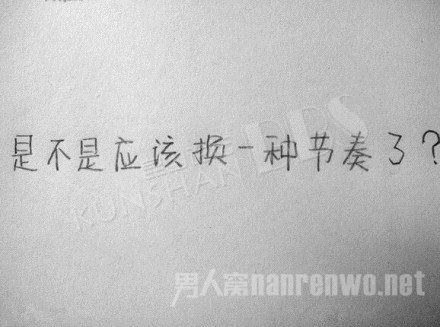 是不是应该换一种节奏了?
KUNSHAN DPS
男人窝nanrenwo.net